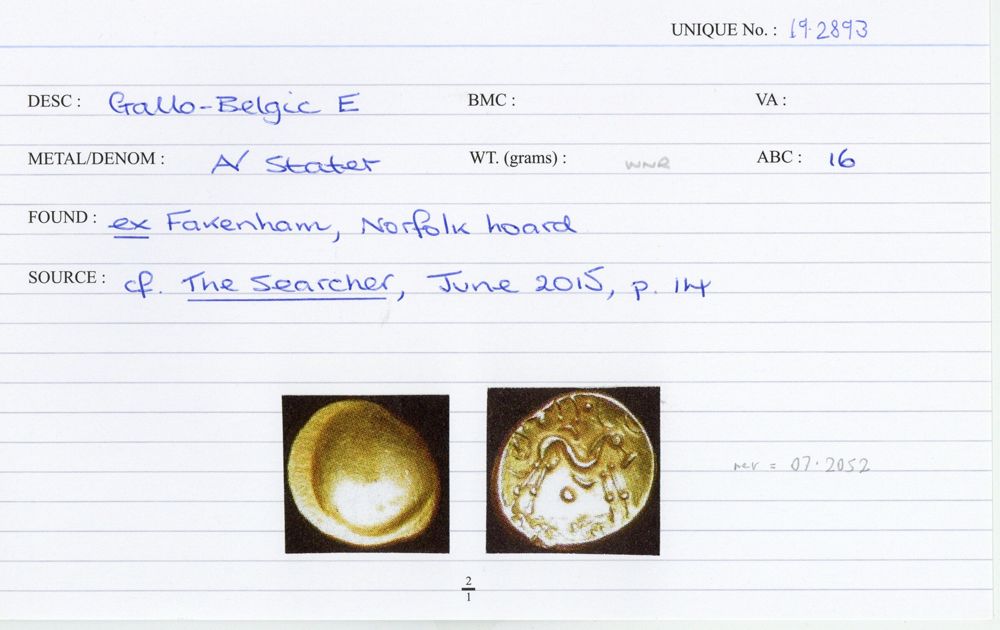 UNIQUE No. : 19.2893
DESC : Gallo-Belgic E BMC : VA :
METAL/DENOM : A/ Stater WT. (grams) : WNR ABC : 16
FOUND : ex Fakenham, Norfolk hoard
SOURCE : cf. The Searcher, June 2015, p. 14
rev = 07.2052
2
1